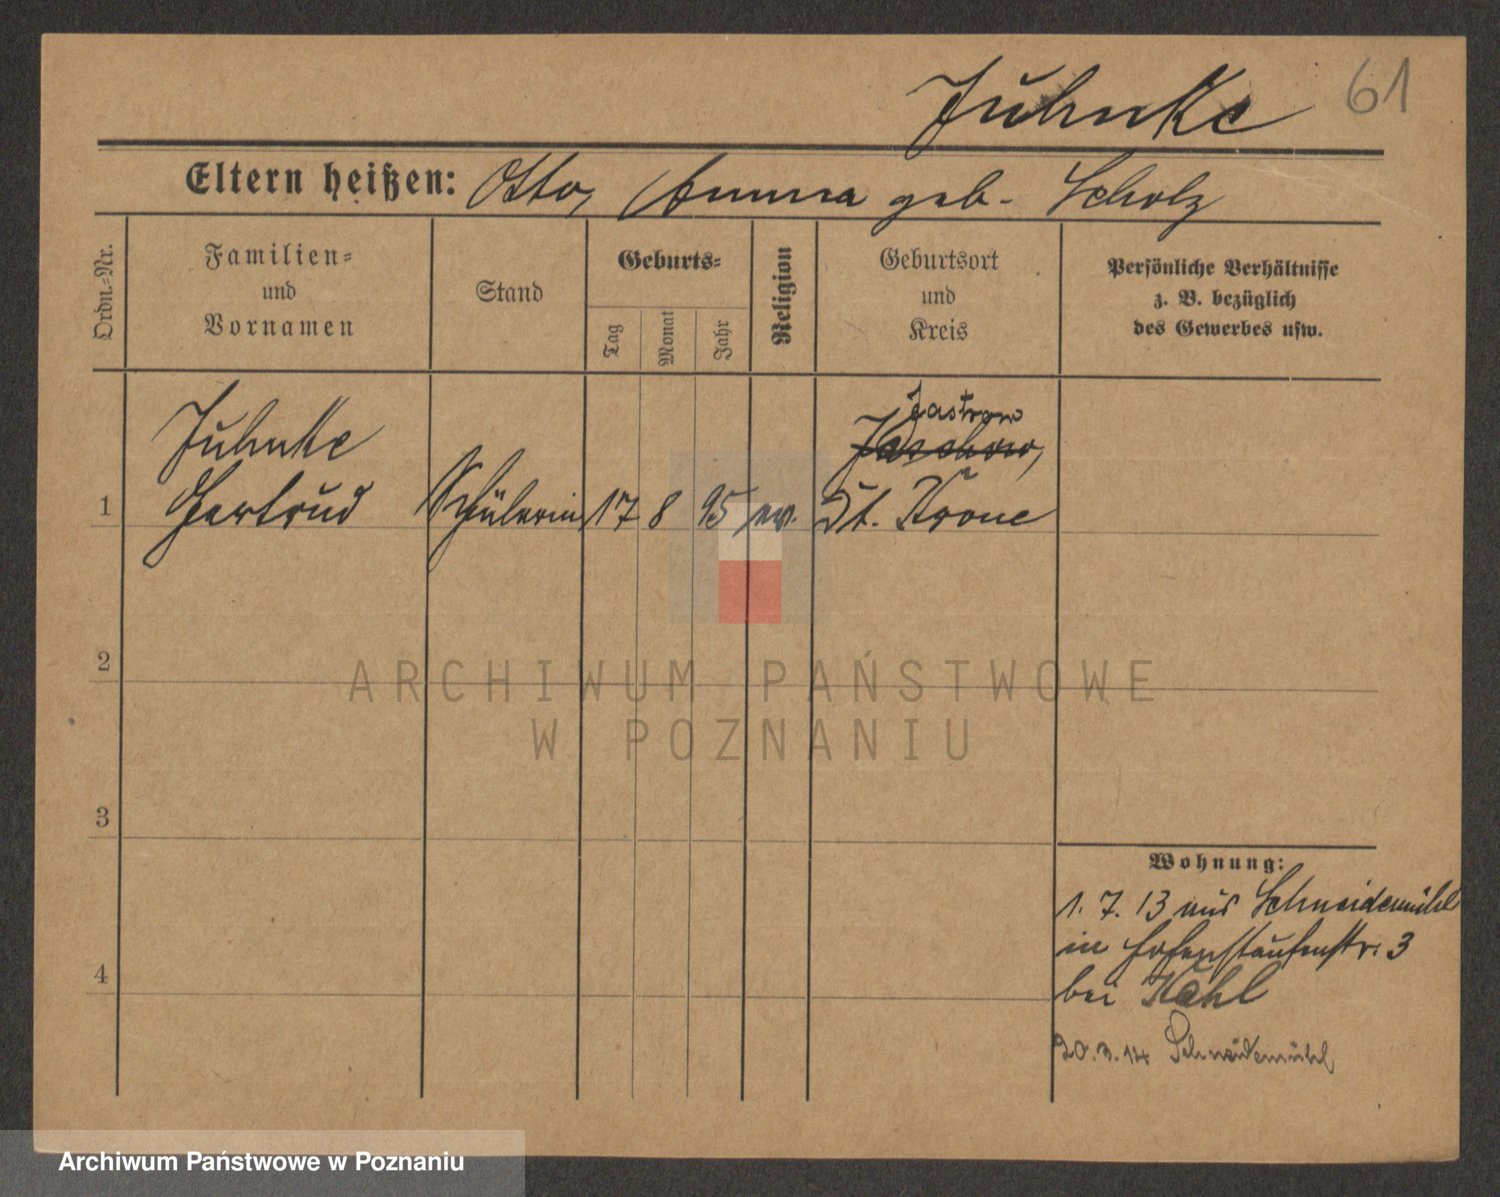 Juhnke 61
Eltern heißen: Otto, Anna geb. Scholz
Ordn.-Nr.
Familien-
und
Vornamen
Stand
Geburts-
Tag
Monat
Jahr
Religion
Geburtsort
und
Kreis
Persönliche Verhältnisse
z. B. bezüglich
des Gewerbes usw.
Jastrow
Juhnke
1 Gertrud Schülerin 17 8 95 ev. Dt. Krone
2
3
4
Wohnung:
1. 7. 13 aus Schneidemühl
in Hohenstaufenstr. 3
bei Kahl
20. 3. 14 Schneidemühl
ARCHIWUM PAŃSTWOWE
W POZNANIU
Archiwum Państwowe w Poznaniu